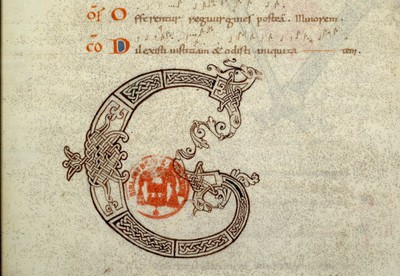 Of O fferentur regi uirgines postea. Minorem.
Co D ilexisti iustitiam & odisti iniquita em.